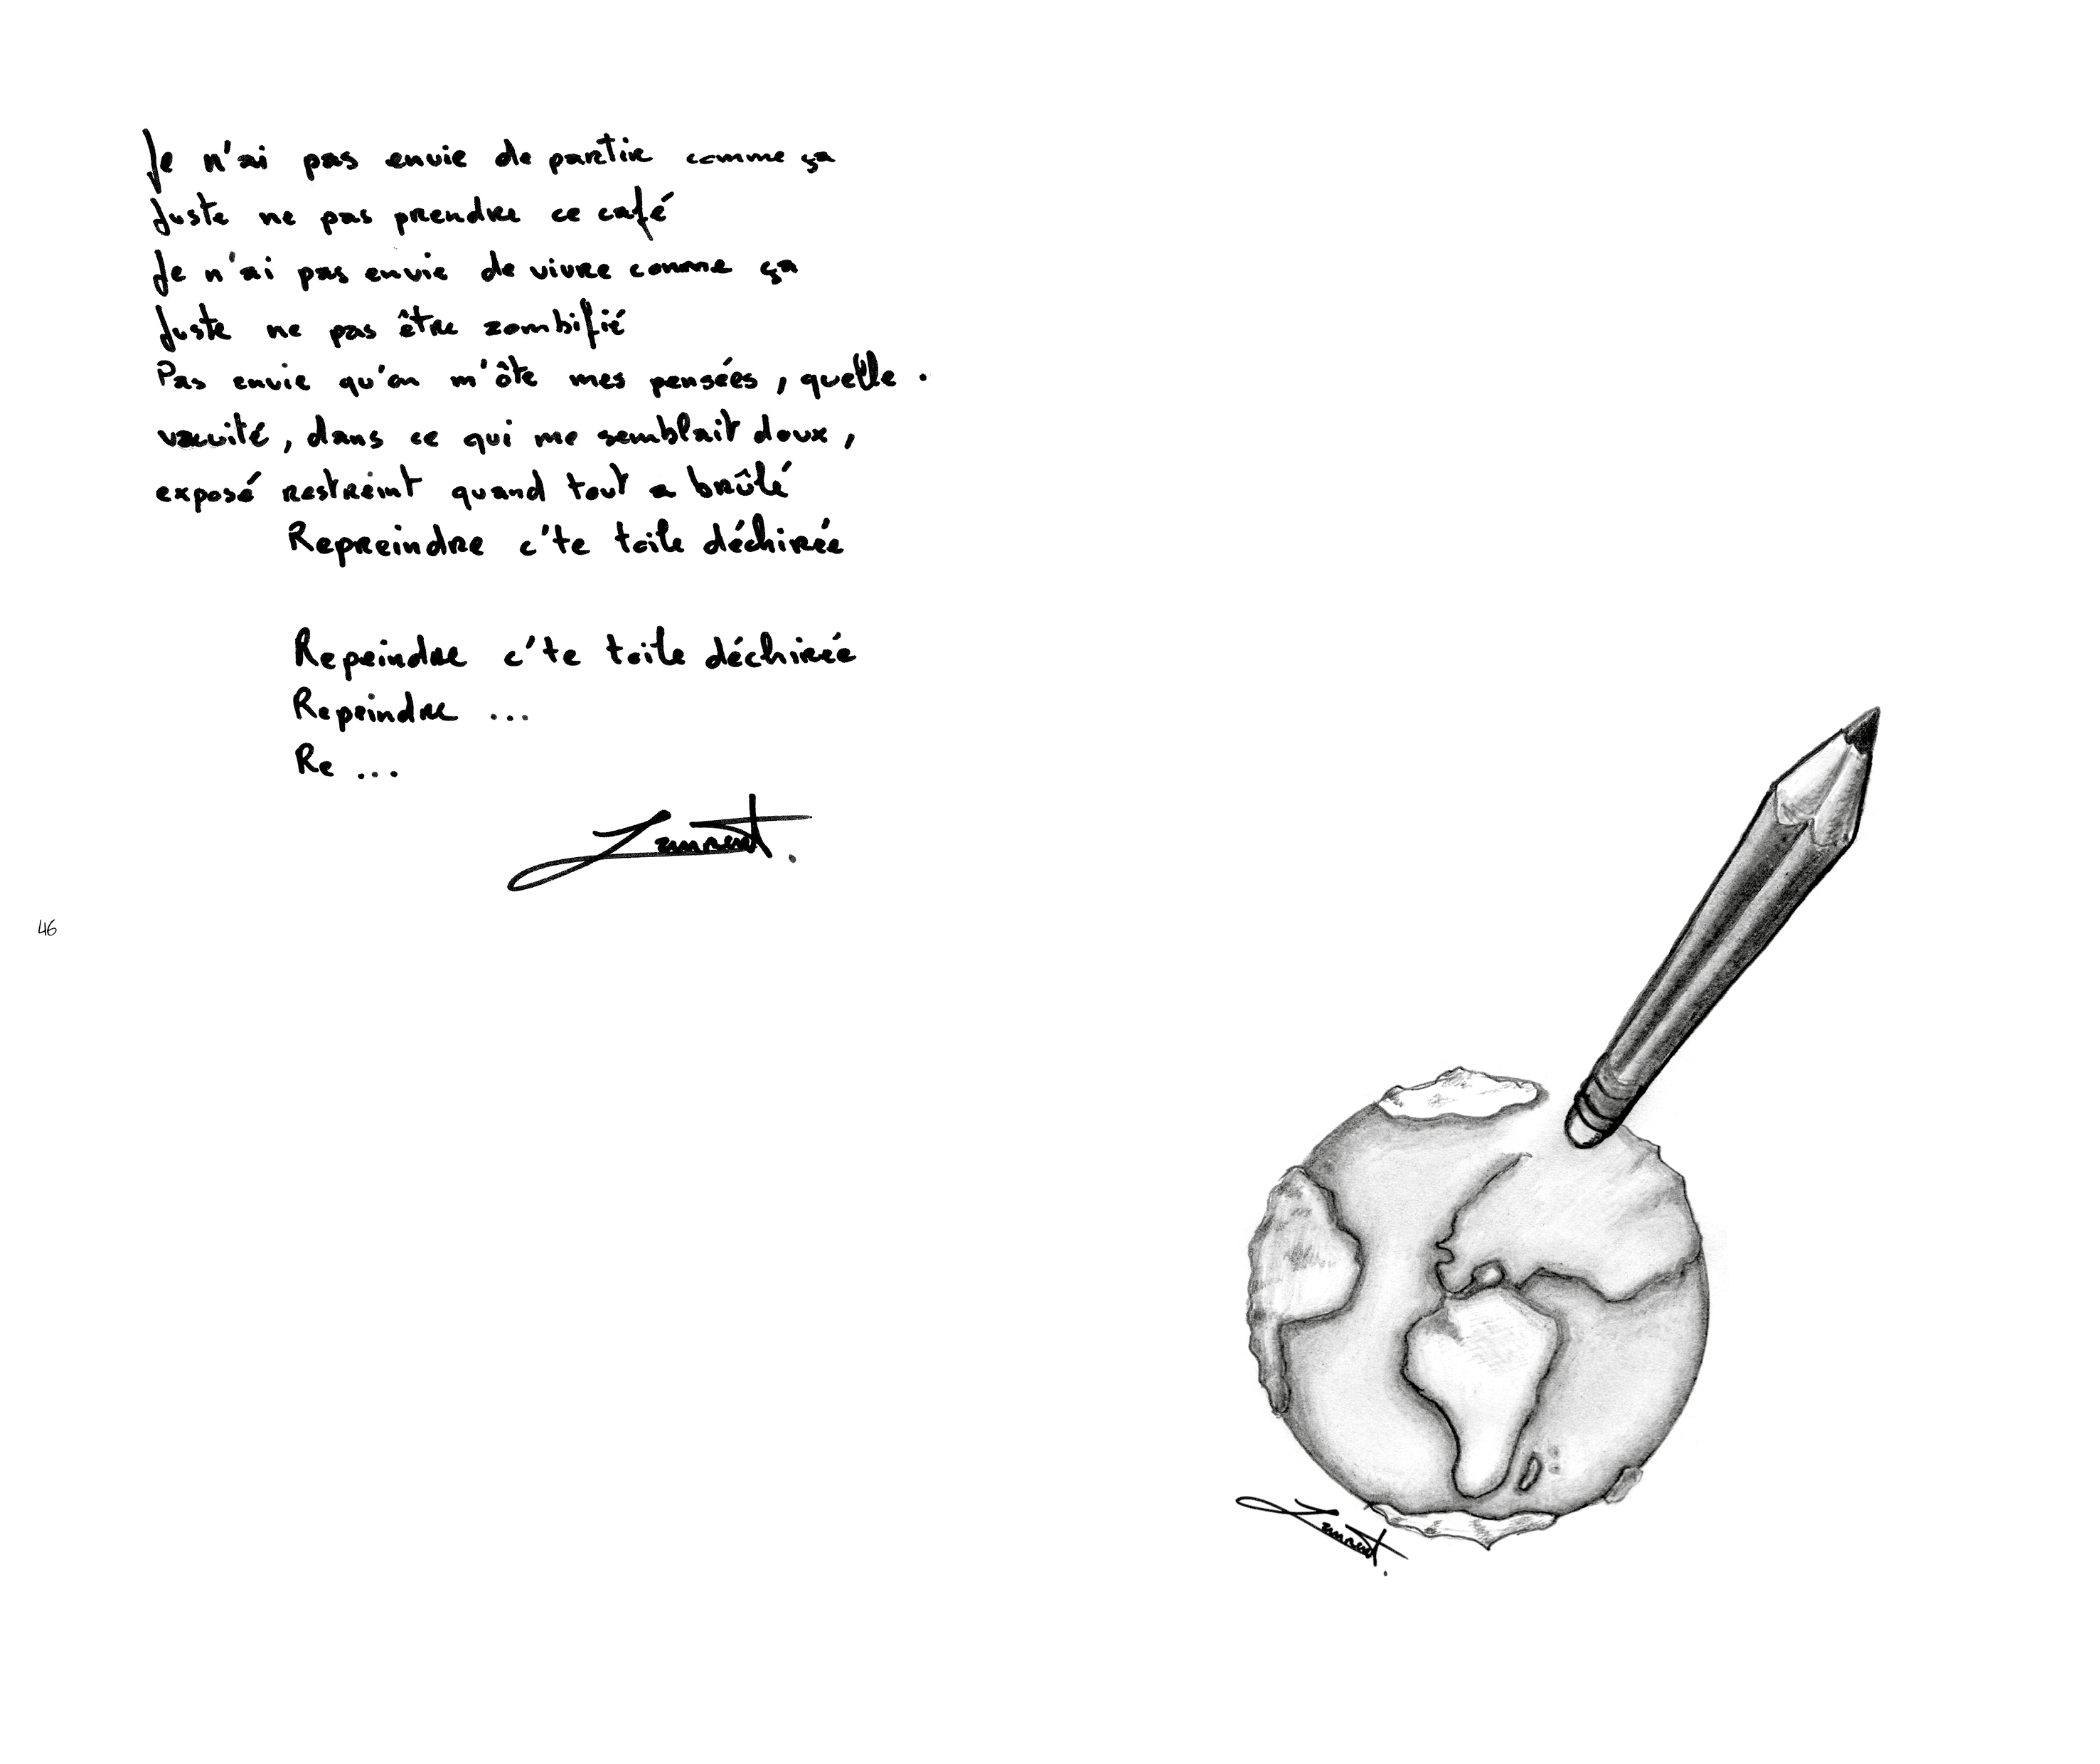 Je n'ai pas envie de partir comme ça
Juste ne pas prendre ce café
Je n'ai pas envie de vivre comme ça
Juste ne pas être zombifié
Pas envie qu'on m'ôte mes pensées, quelle.
vacuité, dans ce qui me semblait doux,
exposé restreint quand tout a brûlé
Repreindre c'te toile déchirée
Repeindre c'te toile déchirée
Repeindre ...
Re ...
Laurent.
46
Laurent.